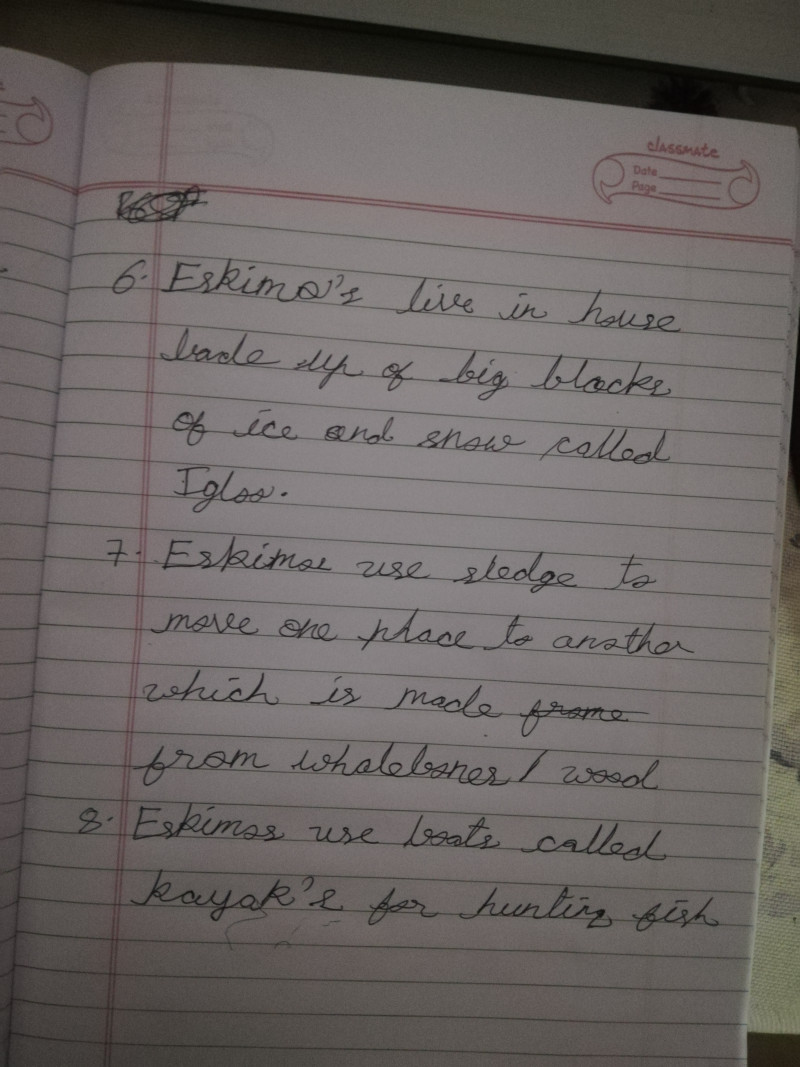 classmate
Date
Page
6. Eskimo's live in house
bade up of big blocks
of ice and snow called
Igloo.
7. Eskimos use sledge to
move one place to another
which is made frome
from whalebones / wood
8. Eskimos use boats called
kayak's for hunting fish